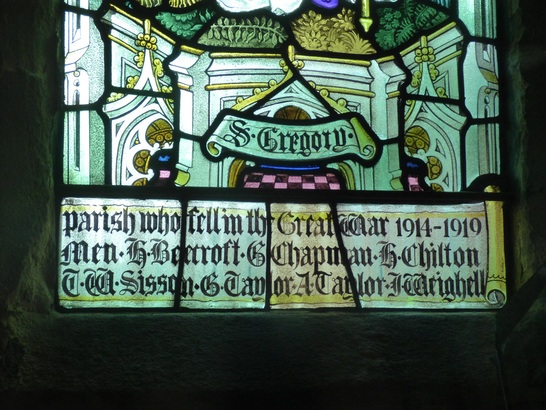 S·Gregory·
parish who fell in the Great War 1914-1919
Men·H·Beecroft·G·Chapman·H·Chilton
T·W·Sisson·G·Taylor·A·Taylor·J·Weighell